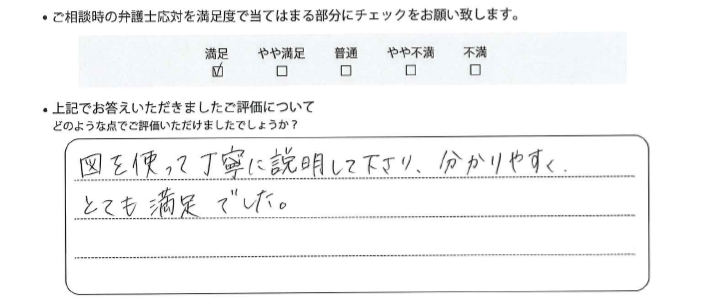 ・ご相談時の弁護士応対を満足度で当てはまる部分にチェックをお願い致します。
満足 やや満足 普通 やや不満 不満
☑ ☐ ☐ ☐ ☐
・上記でお答えいただきましたご評価について
どのような点でご評価いただけましたでしょうか？
図を使って丁寧に説明して下さり、分かりやすく、
とても満足でした。